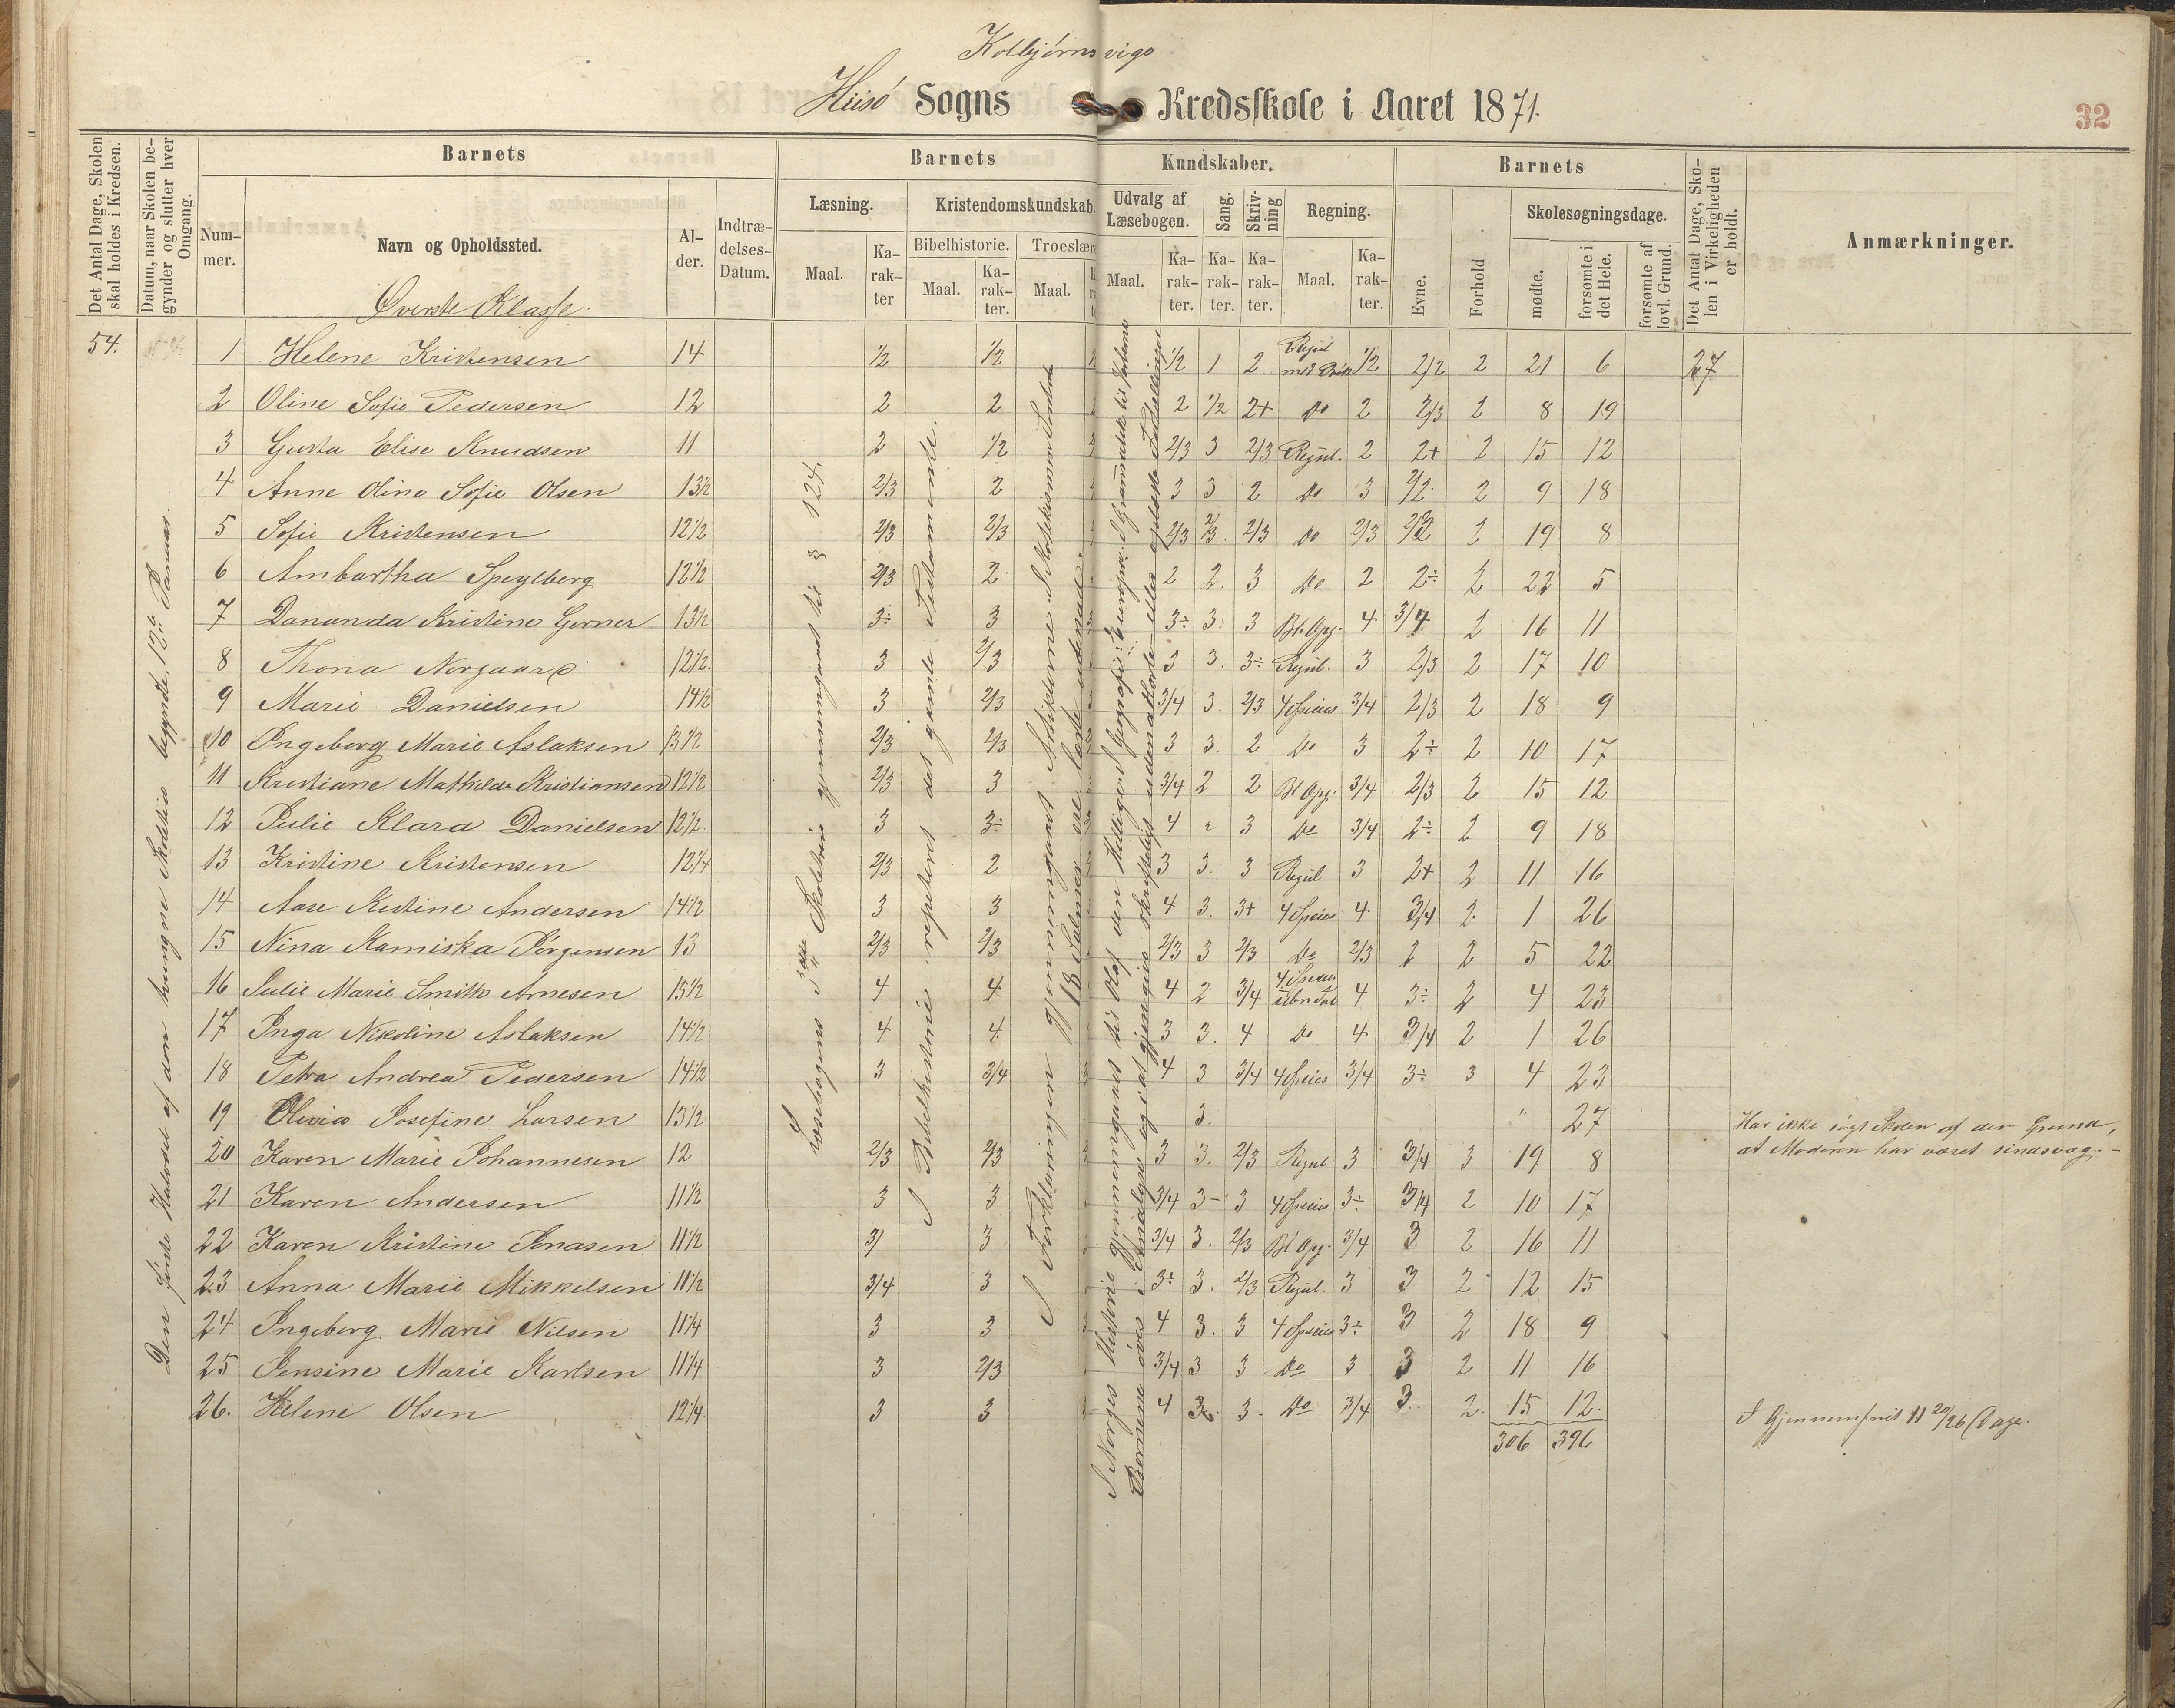 Kolbjörnsvigs
Hiisö Sogns Kredsskole i Aaret 1871.
32
Det Antal Dage, Skolen skal holdes i Kredsen.
Datum, naar Skolen begynder og slutter hver Omgang.
Barnets
Nummer.
Navn og Opholdssted.
Alder.
Indtrædelses-Datum.
Barnets
Læsning.
Maal.
Karakter
Kristendomskundskab.
Bibelhistorie.
Maal.
Karakter.
Troeslær
Maal.
Kundskaber.
Udvalg af Læsebogen.
Maal.
Karakter.
Sang.
Karakter.
Skrivning
Karakter.
Regning.
Maal.
Karakter.
Barnets
Evne.
Forhold
Skolesøgningsdage.
mødte.
forsømte i det Hele.
forsømte af lovl. Grund.
Det Antal Dage, Skolen i Virkeligheden er holdt.
Anmærkninger.
Øverste Klasse.
54. 1 Helene Kristensen 14 1/2 1/2 1/2 1 2 Regul 1/2 2/2 2 21 6 27
2 Oline Sofie Pedersen 12 2 2 2 1/2 2+ Do 2 2/3 2 8 19
3 Gusta Elise Knudsen 11 2 1/2 2/3 3 2/3 Regul. 2 2+ 2 15 12
4 Anne Oline Sofie Olsen 13 1/2 2/3 2 3 3 2 Do 3 2/2 2 9 18
5 Sofie Kristensen 12 1/2 2/3 2/3 2/3 2/3. 2/3 Do 2/3 2/2 2 19 8
6 Ambartha Speylberg 12 1/2 2/3 2 2 2. 3 Do 2 2÷ 2 22 5
7 Dananda Kristine Gerner 13 1/2 3÷ 3 3÷ 3. 3 Bl. Opg. 4 3/4 2 16 11
8 Thona Norgaard 12 1/2. 3 2/3 3 3. 3÷ Regul. 3 2/3 2 17 10
9 Marie Danielsen 14 1/2 3 2/3 3/4 3. 2/3 4 Species 3/4 2/3 2 18 9
10 Ingeborg Marie Aslaksen 13 1/2 2/3 2/3 3 3. 2 Do 3 2÷ 2 10 17
11 Kristiane Mathilde Kristiansen 12 1/2 2/3 3 3/4 2 2 Bl Opg. 3/4 2/3 2 15 12
12 Julie Klara Danielsen 12 1/2. 3 3÷ 4 " 3 Do 3/4 2÷ 2 9 18
13 Kristine Kristensen 12 1/4 2/3 2 3 3. 3 Regul 3 2+ 2 11 16
14 Aase Kistine Andersen 14 1/2 3 3 4 3. 3+ 4 Species 4 3/4 2 1 26
15 Nina Kamiska Jörgensen 13 2/3 2/3 2/3 3 2/3 Do 2/3 2 2 5 22
16 Julie Marie Smith Arnesen 15 1/2 4 4 4 2 3/4 4 Species 4 3÷ 2 4 23
17 Inga Nikoline Aslaksen 14 1/2 4 4. 3 3. 4 Do 4 3/4 2 1 26
18 Petra Andrea Pedersen 14 1/2 3 3/4 4 3 3/4 4 Species 3/4 3÷ 3 4 23
19 Olivia Josefine Larsen 13 1/2 3. " 27 Har ikke sögt Skolen af den Grund,
20 Karen Marie Johannesen 12 2/3 2/3 3 3. 2/3 Regul 3 3/4 3 19 8 at Moderen har været sindsvag.-
21 Karen Andersen 11 1/2 3 3 3/4 3- 3 4 Species 3÷ 3/4 2 10 17
22 Karen Kristine Jonasen 11 1/2 3/ 3 3/4 3. 2/3 Bl Opg. 3/4 3 2 16 11
23 Anna Marie Mikkelsen 11 1/2 3/4 3 3÷ 3. 2/3 Regul. 3 3 2 12 15
24 Ingeborg Marie Nilsen 11 1/4 3 3 4 3. 3 4 Species 3÷ 3 2 18 9
25 Jensine Marie Karlsen 11 1/4 3 2/3 3/4 3 3 Do 3 3 2 11 16
26. Helene Olsen 12 1/4 3 3 4 3. 3. Do 3/4 3. 2. 15 12.
306 396
I Gjennemsnit 11 20/26 Dage.
Den første Halvdel af den tvungne Skoletid begyndte, 12te Januar.
Læsebogens 5te Skoletrin gjennemgaaet til 3 124.
I Bibelhistorie repeteret det gamle Testamente.
I Forklaringen gjennemgaaet Artiklerne
18 Salmer ere lærte udenad.
I Norges Historie gjennemgaaet til Olaf den Hellige. I Geografi: Europa.
Børnene øves i Analyse og i at gjengive skriftligt